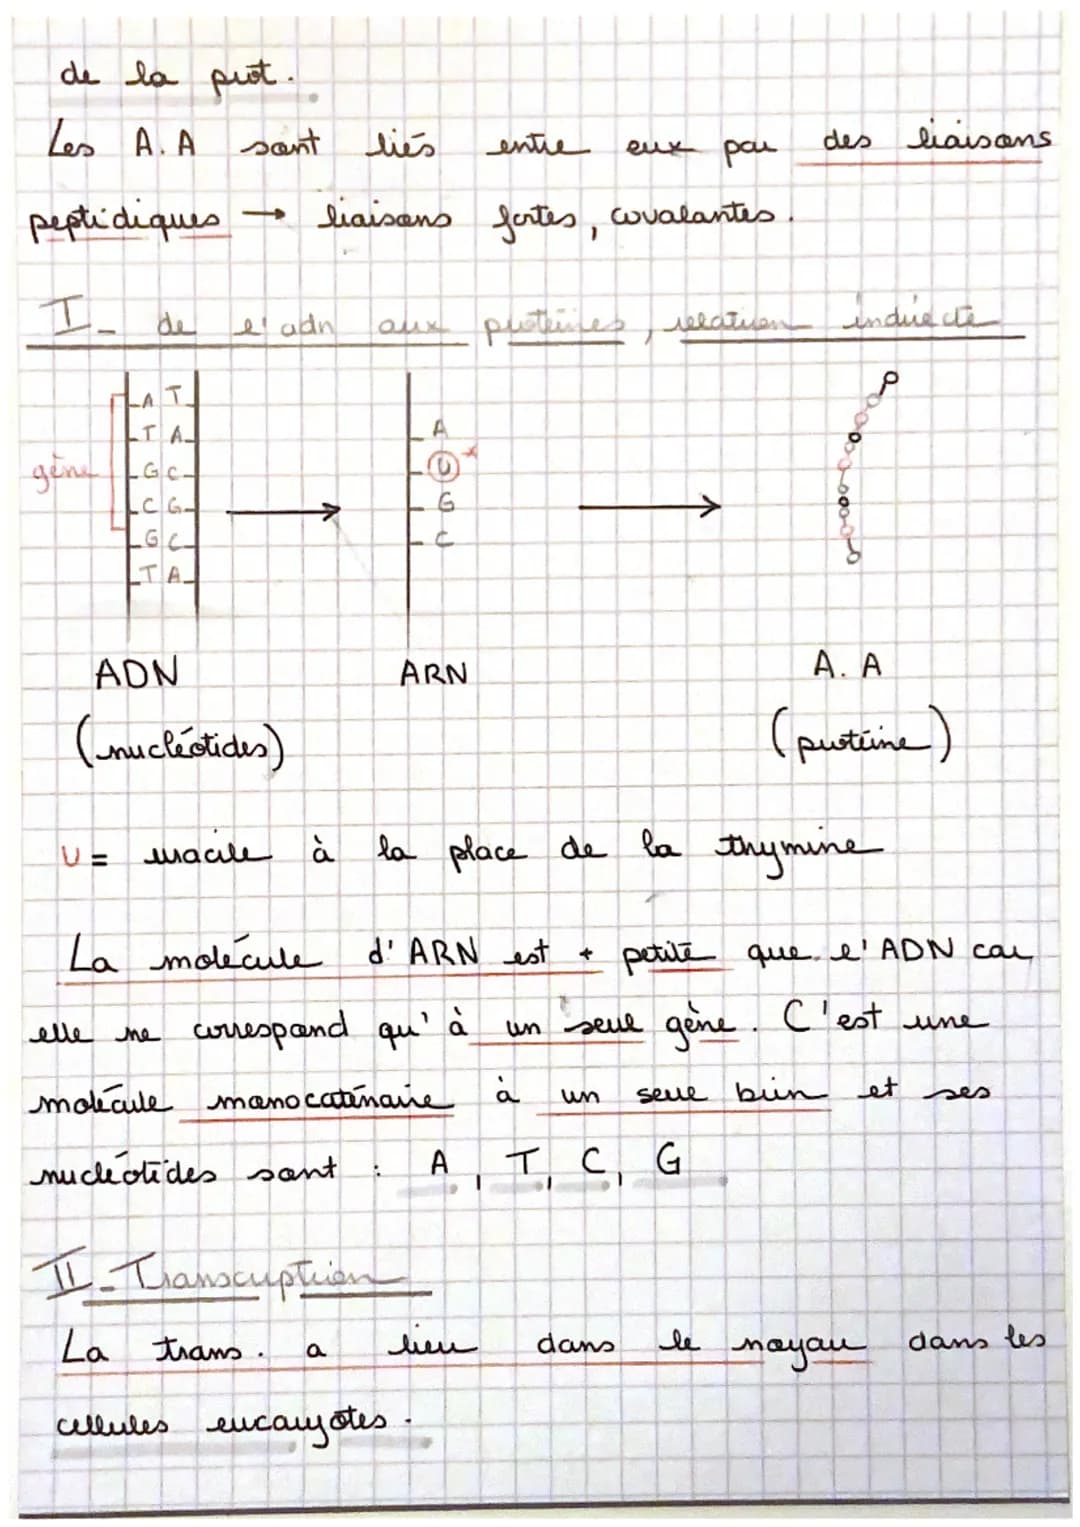 de la prot.
Les A.A sont liés entre eux par des liaisons
peptidiques → liaisons fortes, covalantes.
I- de l'adn aux protéines, relation indirecte
A T
T A
G C
C G
G C
T A
gène
A
U *
G
C
ADN
ARN
A. A
(nucléotides)
(protéine)
U = uracile à la place de la thymine
La molécule d'ARN est + petite que l'ADN car
elle ne correspond qu'à un seul gène. C'est une
molécule monocaténaire à un seul brin et ses
nucléotides sont : A, T, C, G
II- Transcription
La trans. a lieu dans le noyau dans les
cellules eucaryotes.